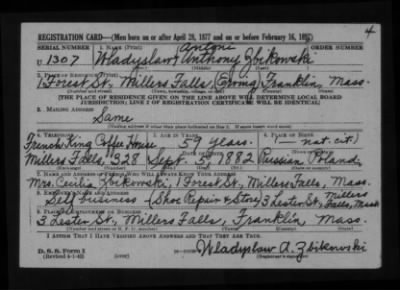 4
REGISTRATION CARD—(Men born on or after April 28, 1877 and on or before February 16, 1897)
SERIAL NUMBER 1. NAME (Print) ORDER NUMBER
Antoni
U 1307 Wladyslaw Anthony Zbikowski
(First) (Middle) (Last)
2. PLACE OF RESIDENCE (Print)
1 Forest St., Millers Falls, (Erving) Franklin, Mass.
(Number and street) (Town, township, village, or city) (County) (State)
[THE PLACE OF RESIDENCE GIVEN ON THE LINE ABOVE WILL DETERMINE LOCAL BOARD
JURISDICTION; LINE 2 OF REGISTRATION CERTIFICATE WILL BE IDENTICAL]
3. MAILING ADDRESS
Same
[Mailing address if other than place indicated on line 2. If same insert word same]
4. TELEPHONE 5. AGE IN YEARS 6. PLACE OF BIRTH
French King House 59 years. (— nat. cit.)
Millers Falls, 328 Sept. 5, 1882 Russian Poland
7. NAME AND ADDRESS OF PERSON WHO WILL ALWAYS KNOW YOUR ADDRESS
Mrs. Cecilia Zbikowski, 1 Forest St., Millers Falls, Mass.
8. EMPLOYER'S NAME AND ADDRESS
Self business - (Shoe Repair Store) 3 Lester St., Millers Falls, Mass
9. PLACE OF EMPLOYMENT OR BUSINESS
3 Lester St., Millers Falls, Franklin Mass.
(Number and street or R. F. D. number) (Town) (County) (State)
I AFFIRM THAT I HAVE VERIFIED ABOVE ANSWERS AND THAT THEY ARE TRUE.
D. S. S. Form 1
(Revised 4-1-42) (over) Wladyslaw A. Zbikowski
(Registrant's signature)